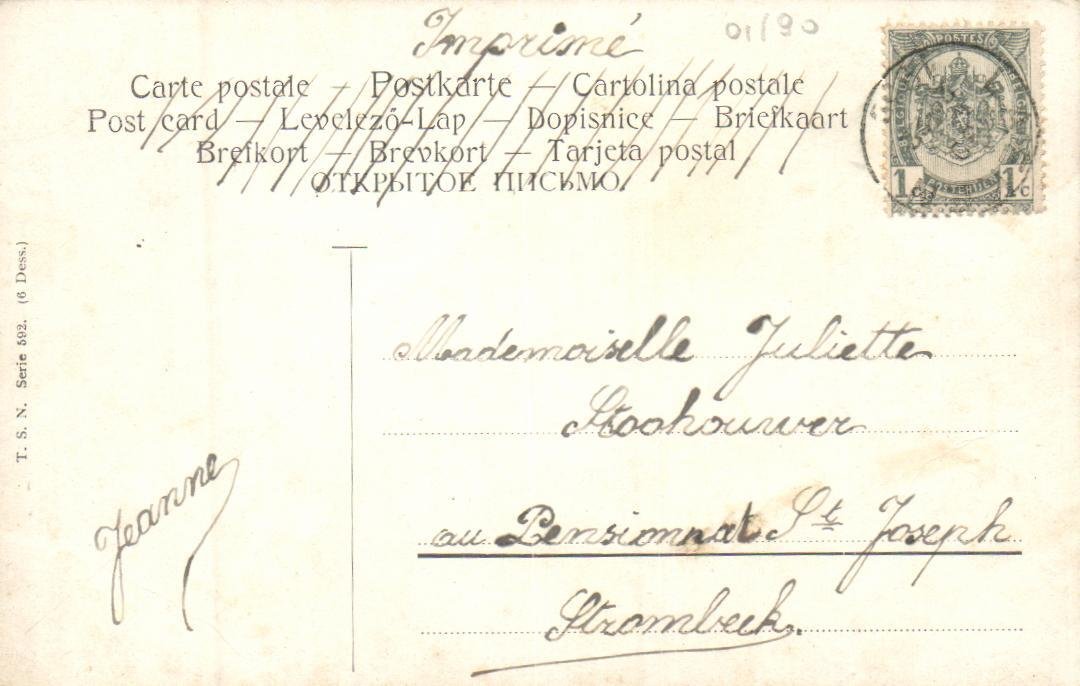 Imprimé
01/90
Carte postale – Postkarte – Cartolina postale
Post card – Levelező-Lap – Dopisnice – Briefkaart
Brefkort – Brevkort – Tarjeta postal
ОТКРЫТОЕ ПИСЬМО.
POSTES
BELGIQUE
BELGIE
1c
POSTERIJEN
1c
T. S. N. Serie 592. (6 Dess.)
Mademoiselle Juliette
Stoohouwer
au Pensionnat St Joseph
Strombeek.
Jeanne